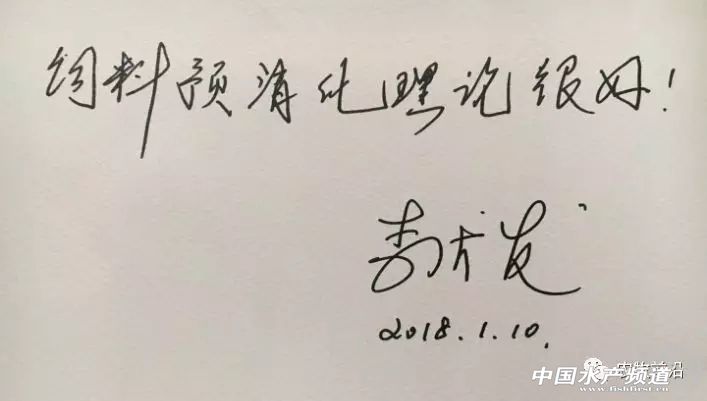 饲料预消化理论很好！
李
发
2018.1.10.
中国水产频道
www.fishfirst.cn